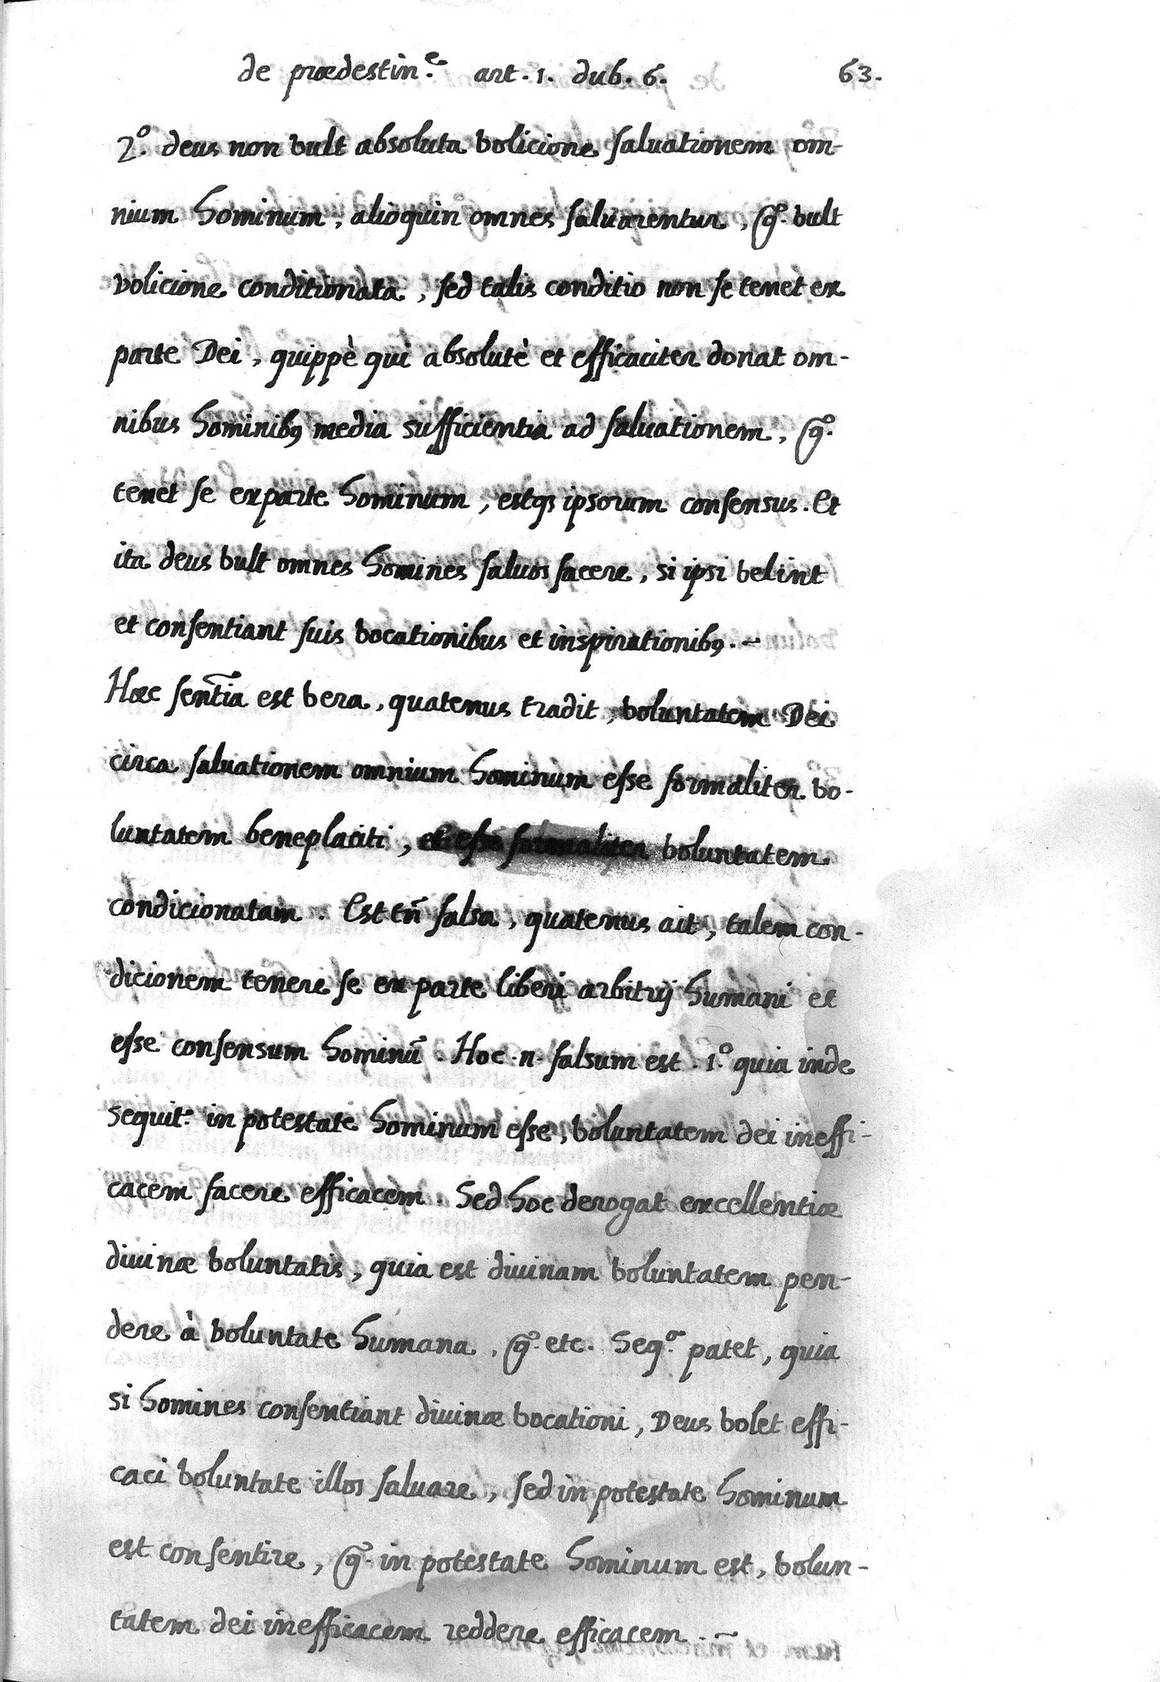 de prædestin.e art. 1. dub. 6. 63.
2.º deus non vult absoluta volicione saluationem om-
nium hominum, alioquin omnes saluarentur, gº. vult
volicione conditionata, sed talis conditio non se tenet ex
parte Dei, quippè qui absolutè et efficaciter donat om-
nibus hominibꝰ media sufficientia ad saluationem, gº.
tenet se ex parte hominum, estqꝫ ipsorum consensus. Et
ita deus vult omnes homines saluos facere, si ipsi velint
et consentiant suis vocationibus et inspirationibꝰ. –
Hæc senña est vera, quatenus tradit, voluntatem Dei
circa saluationem omnium hominum esse formaliter vo-
luntatem beneplaciti, et esse formaliter voluntatem
condicionatam. Est tñ falsa, quatenus ait, talem con-
dicionem tenere se ex parte liberi arbitrij humani et
esse consensum hominũ. Hoc .n. falsum est. 1.º quia inde
sequit.r in potestate hominum esse, voluntatem dei ineffi-
cacem facere efficacem. Sed hoc derogat excellentiæ
diuinæ voluntatis, quia est diuinam voluntatem pen-
dere à voluntate humana, gº. etc. Seq.a patet, quia
si homines consentiant diuinæ vocationi, Deus volet effi-
caci voluntate illos saluare, sed in potestate hominum
est consentire, gº. in potestate hominum est, volun-
tatem dei inefficacem reddere efficacem. –